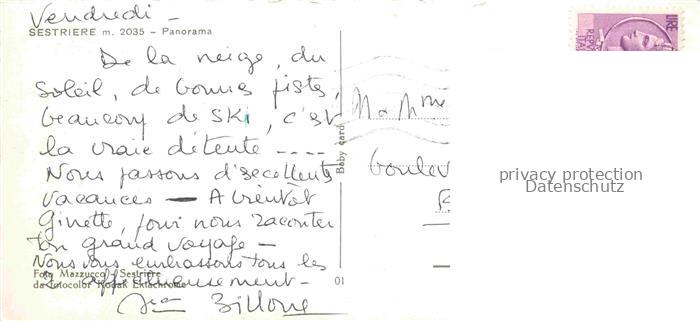 Vendredi -
SESTRIERE m. 2035 - Panorama
De la neige, du
soleil, de bonnes pistes,
beaucoup de ski, c'est
la vraie détente ----
Nous passons d'excellents
vacances - A bientôt
Ginette, pour nous raconter
ton grand voyage -
Nous vous embrassons tous les
2 affectueusement -
Foto Mazzucco - Sestriere
da fotocolor Kodak Ektachrome
01
Baby card
M & Mme
boulev
privacy protection
Datenschutz
LIRE